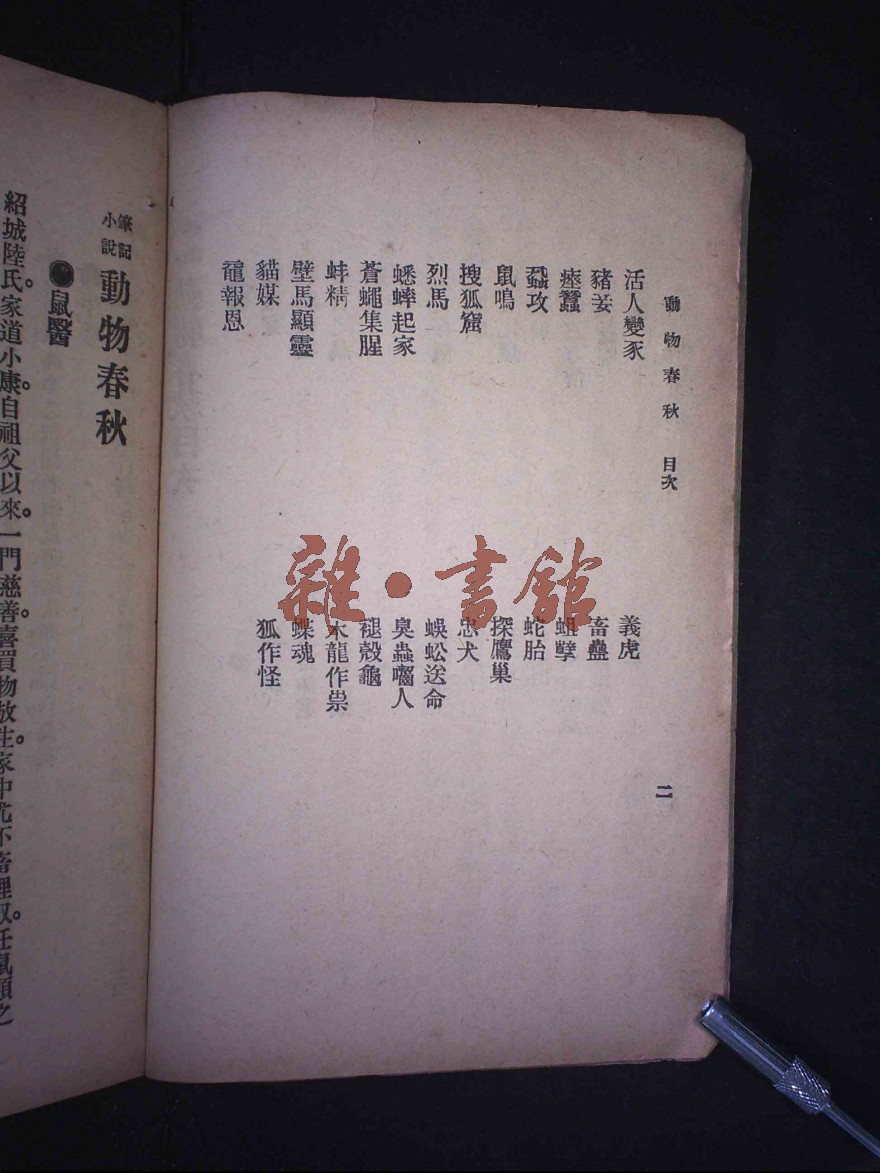 動物春秋 目次
二
活人變豕
義虎
豬妾
畜蠱
瘞蠶
蛆孽
蝨攻
蛇胎
鼠鳴
探鷹巢
搜狐窟
忠犬
烈馬
蜈蚣送命
蟋蟀起家
臭蟲囓人
蒼蠅集腥
褪殼龜
蚌精
木龍作祟
壁馬顯靈
蝶魂
貓媒
狐作怪
黿報恩
雜·書館
筆記小說 動物春秋
●鼠醫
紹城陸氏。家道小康。自祖父以來。一門慈善。喜買物放生。家中尤不畜狸奴。任鼠類之